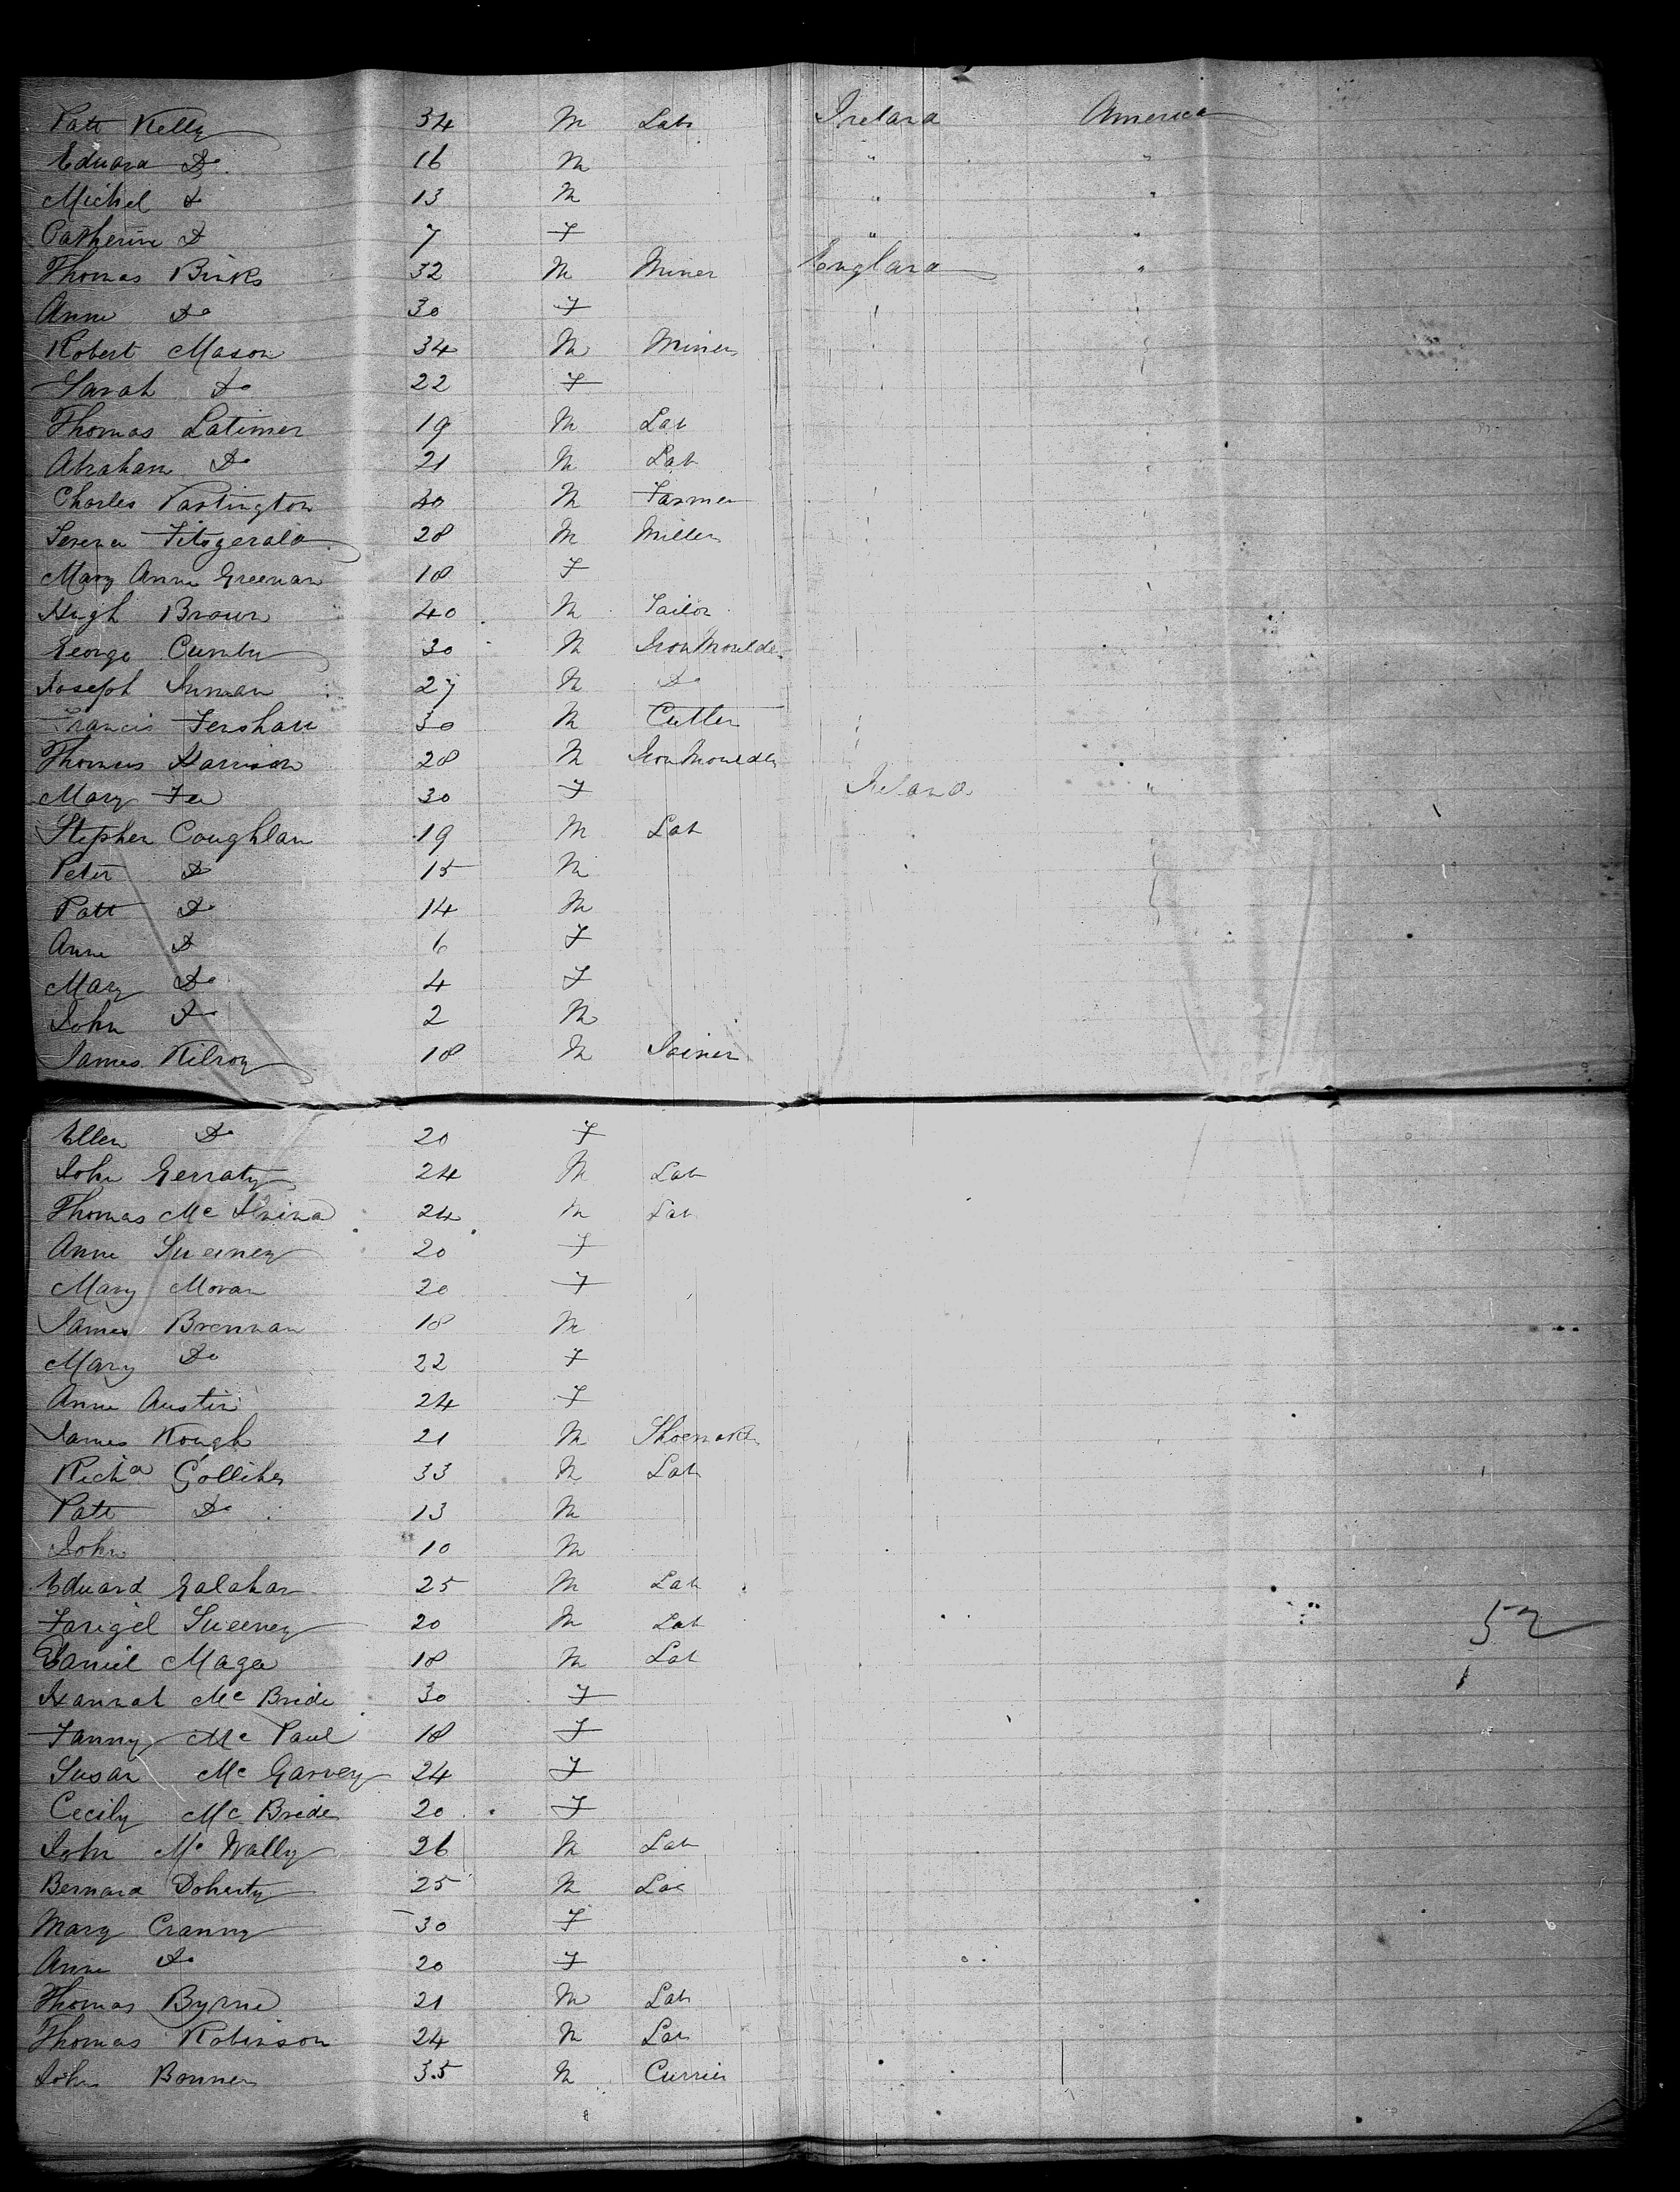 Patt Kelly 34 M Lab Ireland America
Edward Do 16 M " "
Michel Do 13 M " "
Catherine Do 7 F " "
Thomas Binks 32 M Miner England "
Anne Do 30 F
Robert Mason 34 M Miner
Sarah Do 22 F
Thomas Latimer 19 M Lab
Abraham Do 21 M Lab
Charles Partington 40 M Farmer
Fitzgerald 28 M Miller
Mary Anne Greenan 18 F
Hugh Brown 40 M Tailor
George 30 M Iron Moulder
Joseph Inman 27 M Do
Francis 30 M Cutler
Thomas Harrison 28 M Iron Moulder
Mary Fee 30 F Ireland "
Stephen Coughlan 19 M Lab
Peter Do 15 M
Patt Do 14 M
Anne Do 6 F
Mary Do 4 F
John Do 2 M
James Kilroy 18 M Joiner
Ellen Do 20 F
John Gerraty 24 M Lab
Thomas Mc 24 M Lab
Anne Sweeney 20 F
Mary Moran 20 F
James Brennan 18 M
Mary Do 22 F
Anne Austin 24 F
James Kough 21 M Shoemaker
Richd Golliher 33 M Lab
Patt Do 13 M
John 10 M
Edward Galahan 25 M Lab
Farigel Sweeney 20 M Lab 52
Daniel Magee 18 M Lab
Hannah Mc Bride 30 F
Fanny Mc Paul 18 F
Susan Mc Garvey 24 F
Cecily Mc Bride 20 F
John Mc Nally 26 M Lab
Bernard Doherty 25 M Lab
Mary Cranny 30 F
Anne Do 20 F
Thomas Byrne 21 M Lab
Thomas Robinson 24 M Lab
John Bonner 35 M Currier